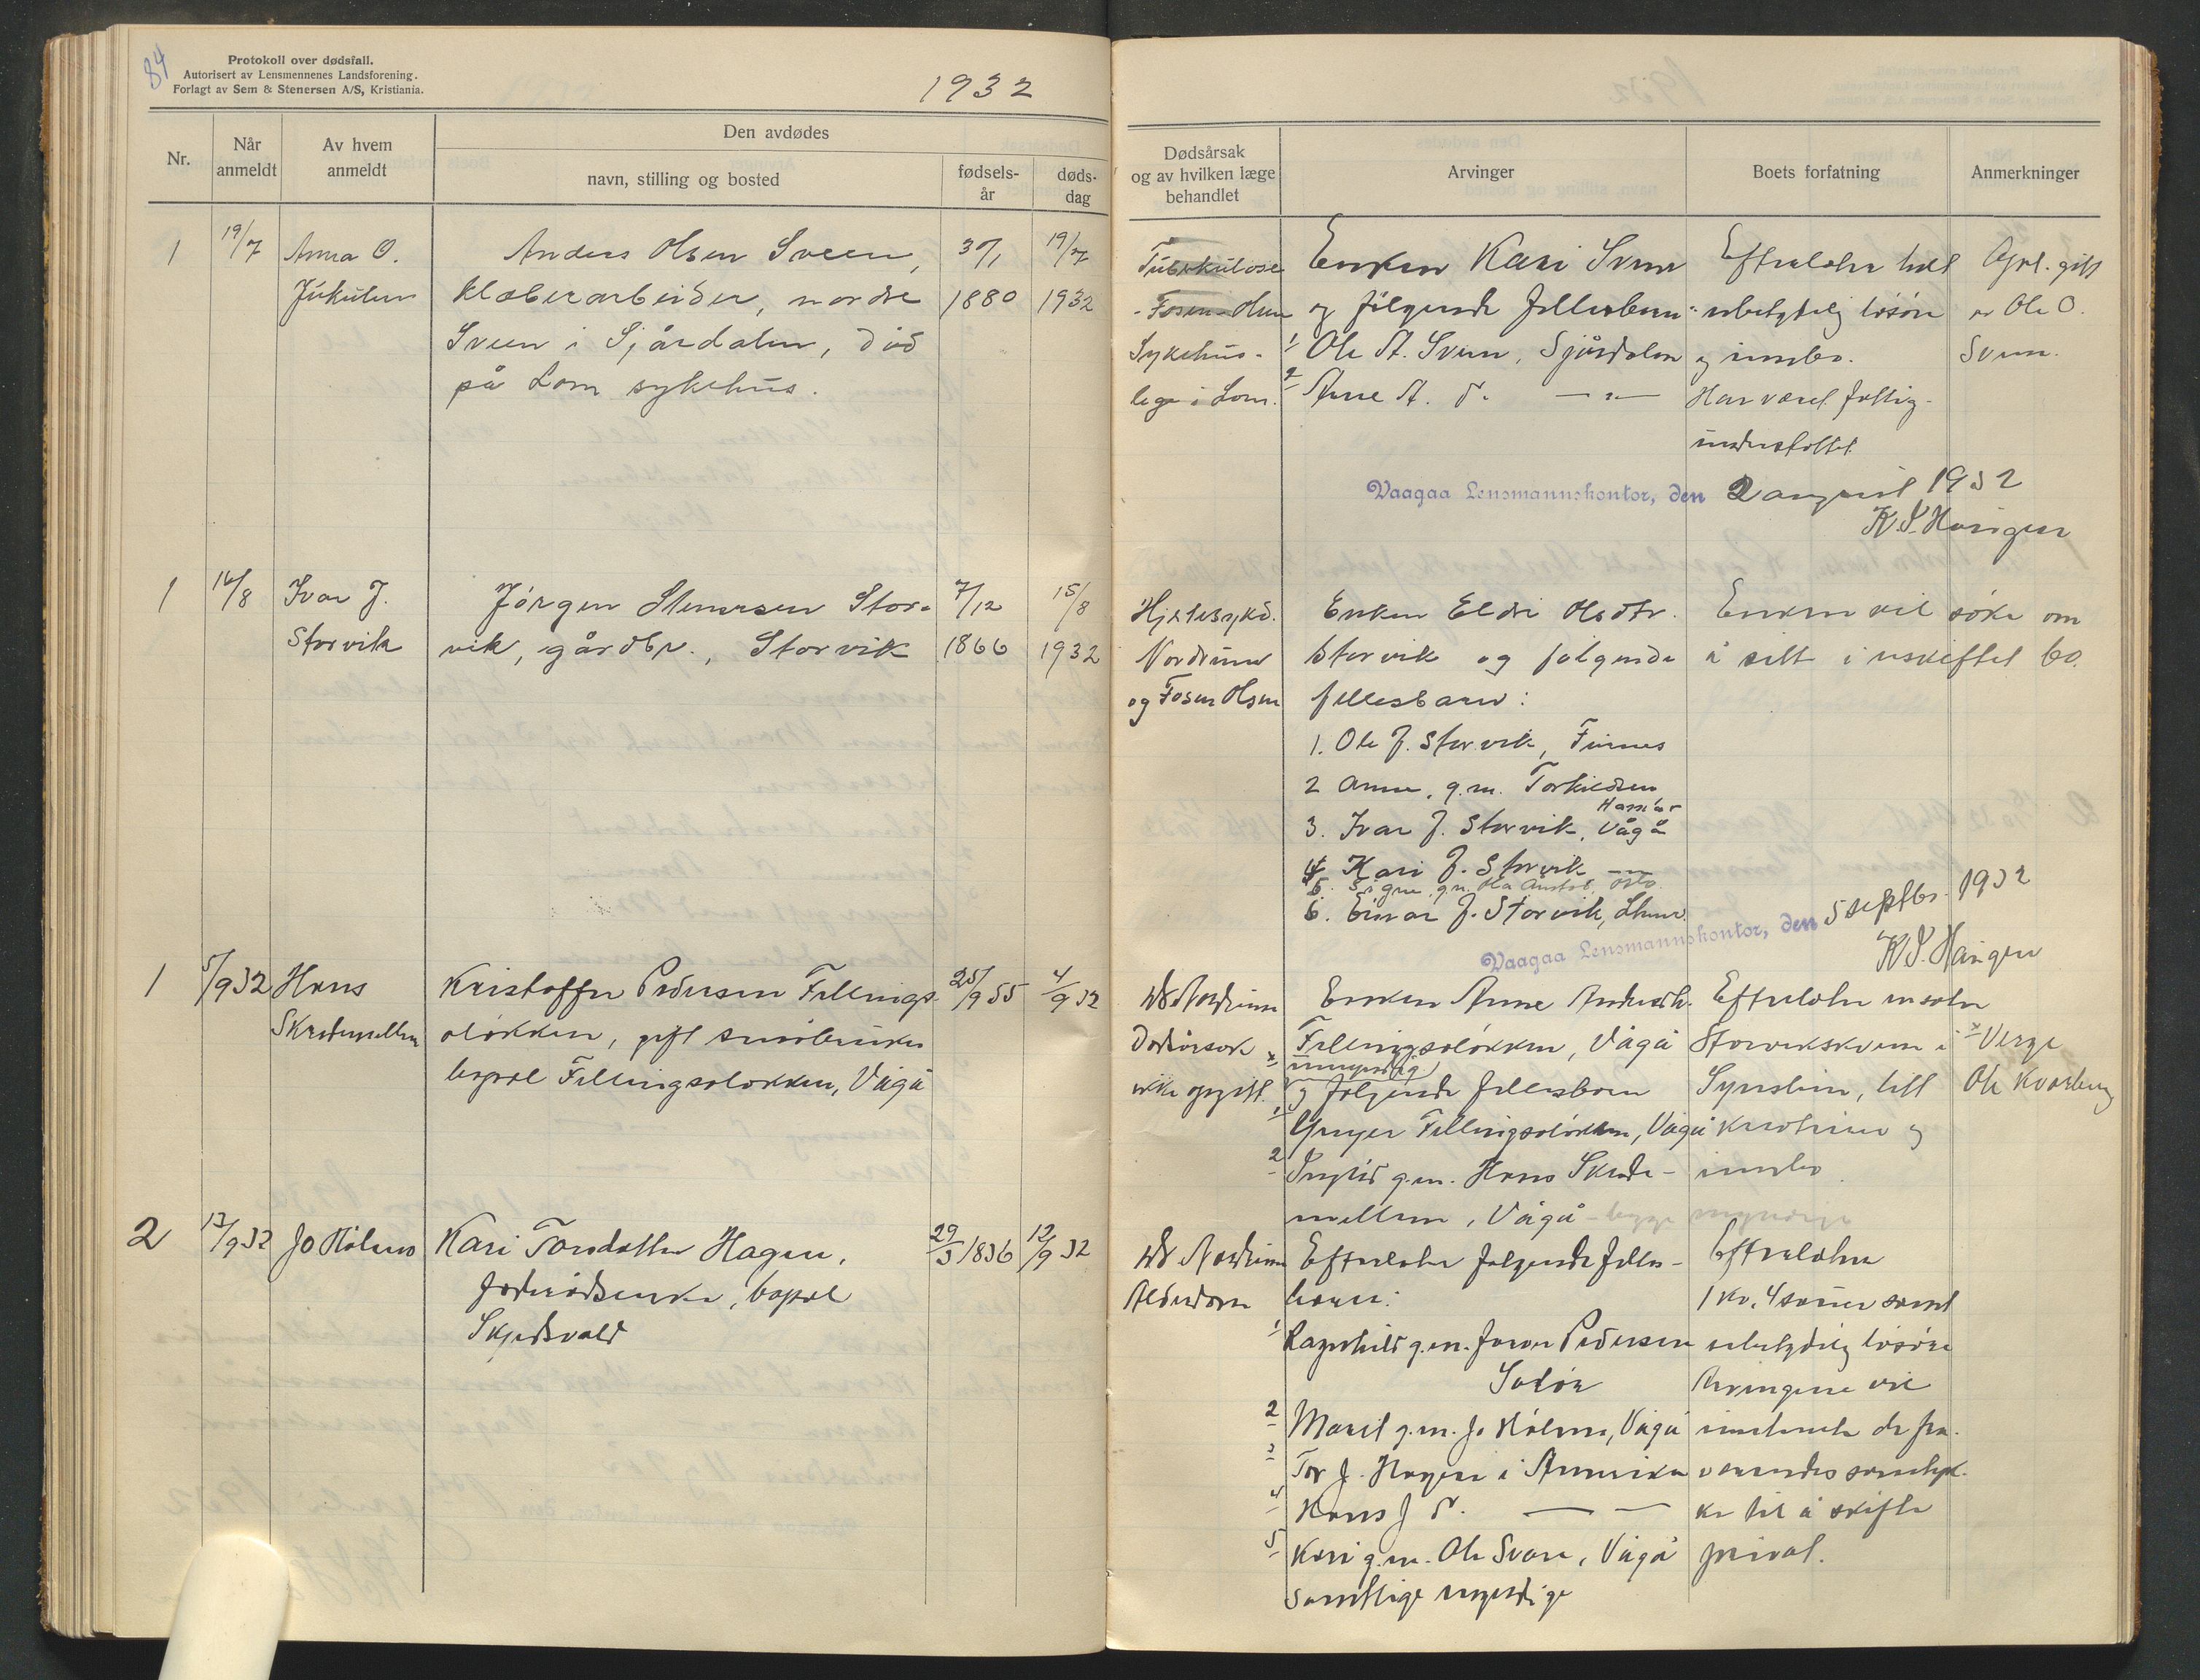 84
Protokoll over dødsfall.
Autorisert av Lensmennenes Landsforening.
Forlagt av Sem & Stenersen A/S, Kristiania.
1932
Nr.
Når anmeldt
Av hvem anmeldt
Den avdødes
navn, stilling og bosted
fødsels-år
døds-dag
Dødsårsak
og av hvilken læge
behandlet
Arvinger
Boets forfatning
Anmerkninger
1
19/7
Anna O.
Anders Olsen Sveen,
klæberarbeider, nordre
1880
19/7
1932
Sveen i Sjårdalen, død
på Lom sykehus.
Tuberkulose
Fosen-Olsen
Sykehus-
lege i Lom.
Enken Kari Sveen
og følgende fellesbarn:
1 Ole A. Sveen, Sjårdalen
2 Anne A. d. — " —
Efterlater litt
ubetydelig løsøre
og innbo.
Har været fattig-
understøttet
gift
er Ole O.
Sveen.
Vaagaa Lensmannskontor, den 2 august 1932
1
16/8
Ivar J.
Storvik
Jørgen Stenersen Stor-
vik, gårdbr., Storvik
7/12
1866
15/8
1932
Hjertesykd.
Nordrum
og Fosen Olsen
Enken Eldri Olsdtr.
Storvik og følgende
fellesbarn:
1. Ole J. Storvik, Furnes
2 Anne, g.m. Torkildsen
Hamar
3. Ivar J. Storvik, Vågå
4 Kari J. Storvik —"—
5. Signe, g.m. Ola Oslo.
6. Einar J. Storvik,
Enken vil søke om
å sitt i uskiftet bo.
Vaagaa Lensmannskontor, den 5 septbr. 1932
1
5/9 32
Hans
Skredemellen
Kristoffer Pedersen Fellings-
løkken, gift småbruker
bopæl Fellingsløkken, Vågå
25/9 55
4/9 32
Dr Nordrum
Dødsårsak
ikke opgitt.
Enken Anne Andersdtr.
Fellingsløkken, Vågå
x umyndig
og følgende fellesbarn
1 Ynger Fellingsløkken, Vågå
2 Ingrid g.m. Hans Skrede-
mellem, Vågå - begge myndige
Efterlater
i
litt
kreaturer og
innbo
x Verge
Ole Kvarberg
2
13/9 32
Jo Holmo
Kari Torsdatter Hagen,
bopæl
29/3 1836
12/9 32
Dr Nordrum
Alderdom
Efterlater følgende felles-
barn:
1 Ragnhild g.m. Johan Pedersen
2 Marit g.m. Jo Holmo, Vågå
3 Tor J. Hagen i Amerika
4 Hans J d. — —
5 Kari g.m. Ole Svare, Vågå
samtlige myndige
Efterlater
1 ku, 4 sauer samt
ubetydelig løsøre
Arvingene vil
innhente de fra-
værendes samtyk-
ke til å skifte
privat.